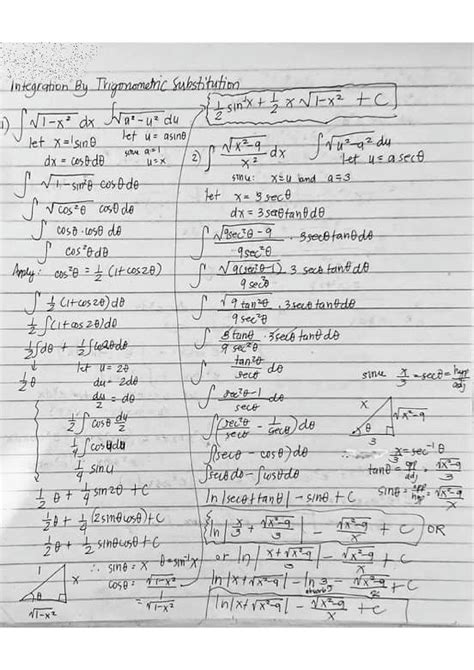 Integration By Trigonometric Substitution
1) ∫√(1-x²) dx   ∫√(a²-u²) du
let x = 1 sinθ   let u = a sinθ
dx = cosθ dθ   since a=1
u=x
∫ √(1-sin²θ) cosθ dθ
∫ √(cos²θ) cosθ dθ
∫ cosθ · cosθ dθ
∫ cos²θ dθ
Apply: cos²θ = 1/2 (1+cos2θ)
∫ 1/2 (1+cos2θ) dθ
1/2 ∫(1+cos2θ) dθ
1/2 ∫dθ + 1/2 ∫cos2θ dθ
1/2 θ   let u = 2θ
du = 2dθ
du/2 = dθ
1/2 ∫ cosθ du/2
1/4 ∫ cosu du
1/4 sin u
1/2 θ + 1/4 sin2θ + C
1/2 θ + 1/4 (2sinθcosθ) + C
1/2 θ + 1/2 sinθcosθ + C
1   x   θ   √(1-x²)
∴ sinθ = x   θ = sin⁻¹x
cosθ = √(1-x²)/1
= √(1-x²)
1/2 sin⁻¹x + 1/2 x √(1-x²) + C
2) ∫ √(x²-9)/x² dx   ∫√(u²-a²) du
let u = a secθ
since: x=u and a=3
let x = 3 secθ
dx = 3 secθ tanθ dθ
∫ √(9sec²θ - 9)/9sec²θ · 3secθ tanθ dθ
∫ √(9(sec²θ-1))/9sec²θ · 3 secθ tanθ dθ
∫ √(9 tan²θ)/9sec²θ · 3secθ tanθ dθ
∫ 3tanθ/9sec²θ · 3secθ tanθ dθ
∫ tan²θ/secθ dθ
∫ sec²θ-1/secθ dθ
∫(sec²θ/secθ - 1/secθ) dθ
∫(secθ - cosθ) dθ
∫secθ dθ - ∫cosθ dθ
ln|secθ+tanθ| - sinθ + C
since x/3 = secθ = hyp/adj
x   √(x²-9)   θ   3
x/3 = sec⁻¹θ
tanθ = opp/adj
sinθ = opp/hyp = √(x²-9)/x
ln|x/3 + √(x²-9)/3| - √(x²-9)/x + C OR
or ln|x+√(x²-9)/3| - √(x²-9)/x + C
ln|x+√(x²-9)| - ln3 - √(x²-9)/x + C
absorb
ln|x+√(x²-9)| - √(x²-9)/x + C